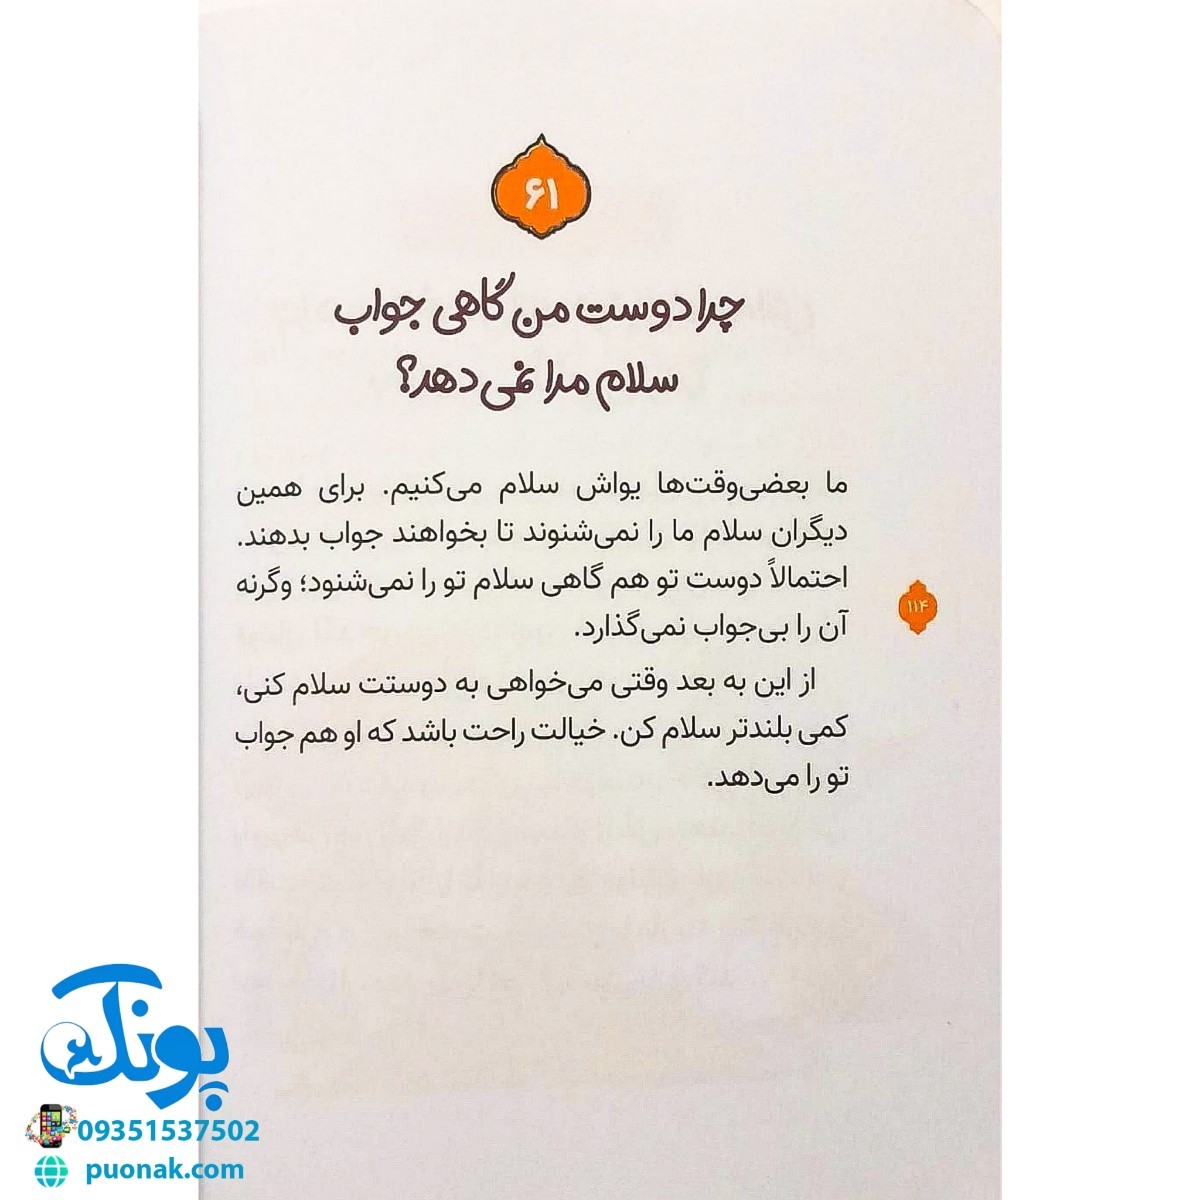 ۶۱
چرا دوست من گاهی جواب
سلام مرا نمی‌دهد؟
ما بعضی‌وقت‌ها یواش سلام می‌کنیم. برای همین
دیگران سلام ما را نمی‌شنوند تا بخواهند جواب بدهند.
احتمالاً دوست تو هم گاهی سلام تو را نمی‌شنود؛ وگرنه
آن را بی‌جواب نمی‌گذارد.
۱۱۴
از این به بعد وقتی می‌خواهی به دوستت سلام کنی،
کمی بلندتر سلام کن. خیالت راحت باشد که او هم جواب
تو را می‌دهد.
پونک
09351537502
puonak.com